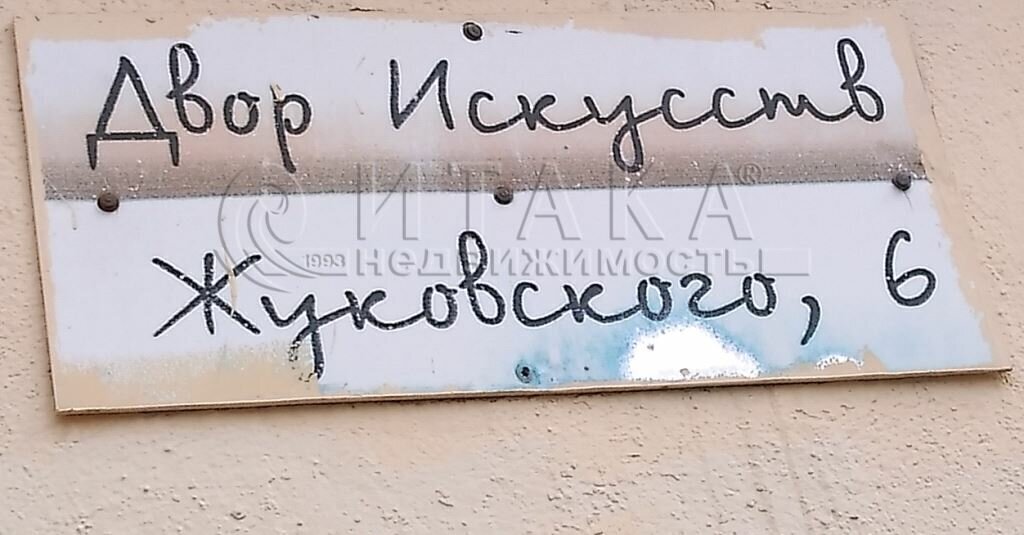 Двор Искусств
ИТАКА®
1993 недвижимость
Жуковского, 6